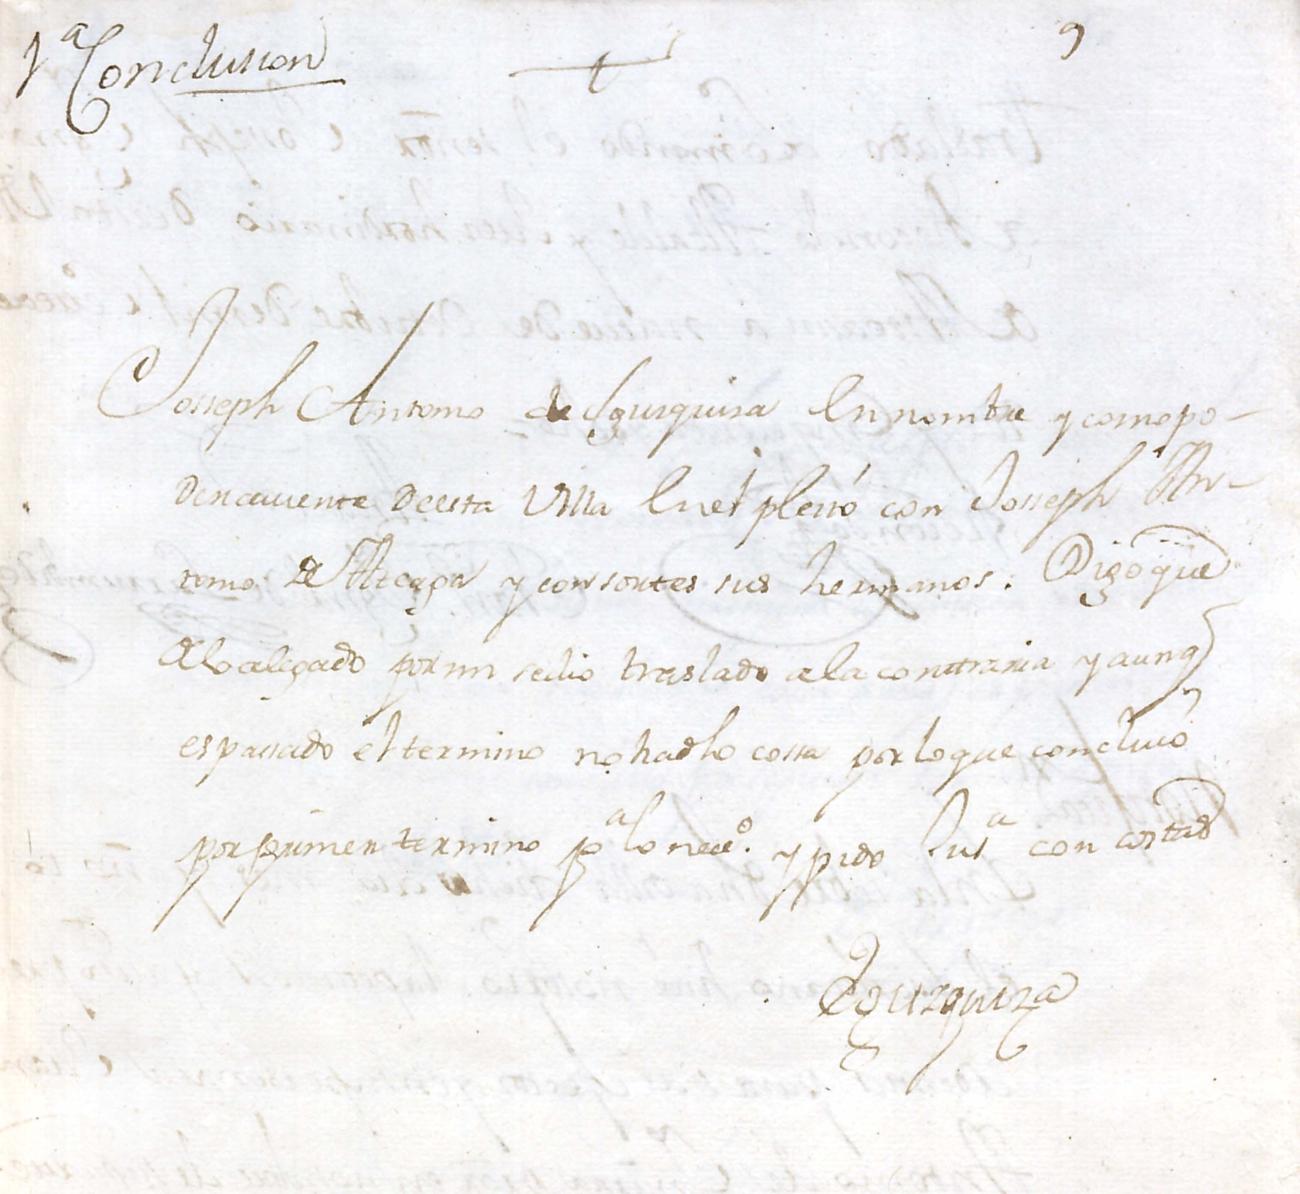 1ª Conclusion
9
Josseph Antonio de Eguzquiza En nombre y como po-
derauiente de esta Villa En el pleito con Josseph An-
tonio de Ateaga y consortes sus hermanos. Digo que
de lo alegado por mi se dio traslado a la contraria y aunq
es passado el termino no ha dho cossa por lo que concluió
por primer termino pª lo neceº. y pido Jusª con costas
Eguzquiza